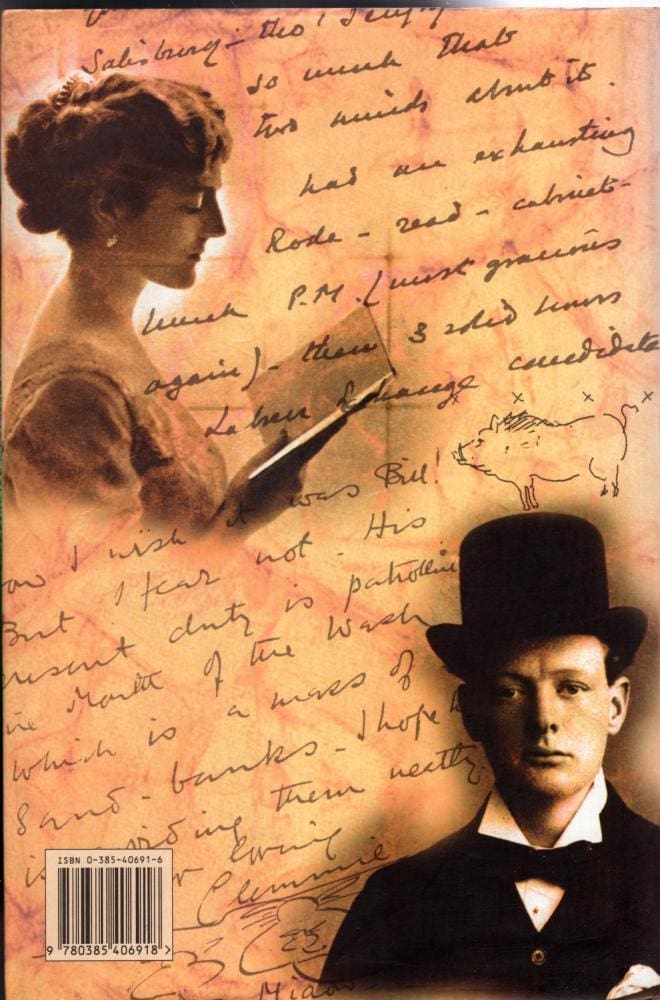 Salisbury - tho' I enjoy
so much that
two minds about it.
had an exhausting
Rode - read - cabinet-
lunch P.M. (most gracious
again) - then 3 solid hours
Labour Exchange candidate
was Bill!
I wish
But I fear not - His
present duty is patrollin
Mouth of the Wash
Which is a mass of
Sand-banks - I hope
them neatly
loving
Clemmie
Miaow
ISBN 0-385-40691-6
9 780385 406918 >